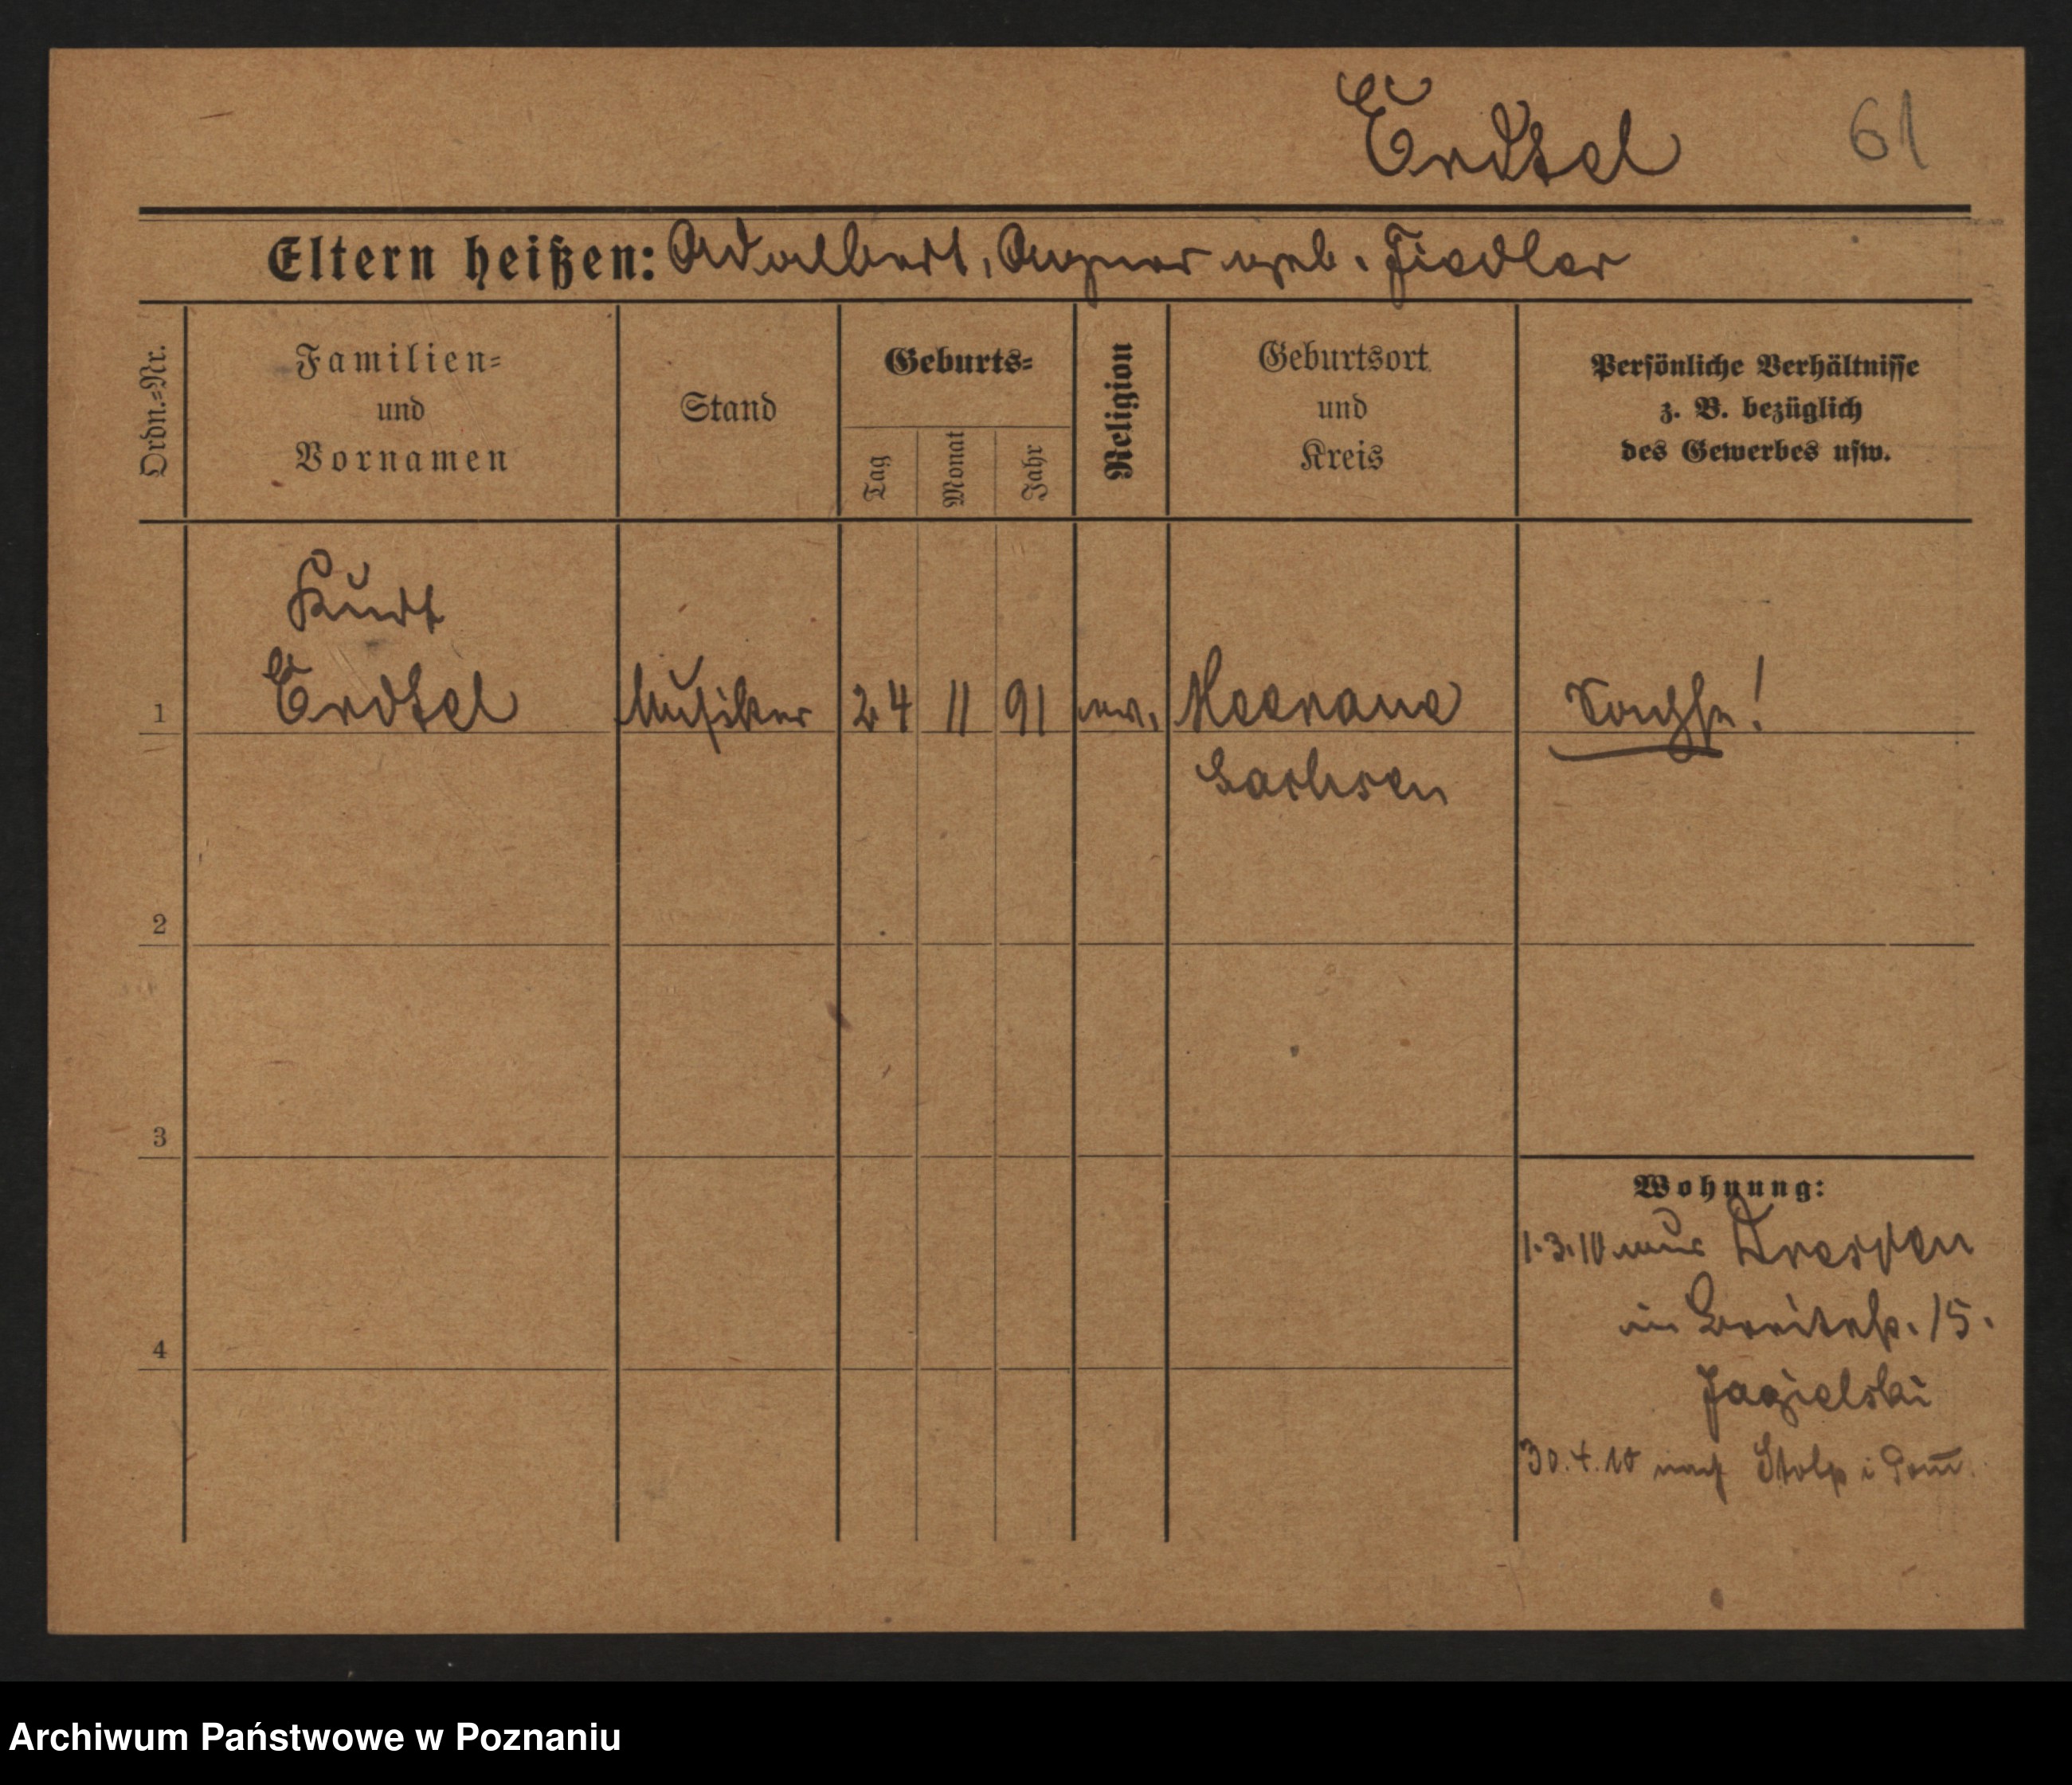 Erdtel 61
Eltern heißen: Adalbert, Agnes geb. Fiedler
Ordn.=Nr.
Familien=
und
Vornamen
Stand
Geburts=
Tag
Monat
Jahr
Religion
Geburtsort
und
Kreis
Persönliche Verhältnisse
z. B. bezüglich
des Gewerbes usw.
Kurt
1 Erdtel Musiker 24 11 91 ev. Meerane
Sachsen
2
3
Wohnung:
1.3.10 aus Dresden
in Breitestr. 15.
Jagielski
4
30.4.10 nach Stolp i Pom.
Archiwum Państwowe w Poznaniu